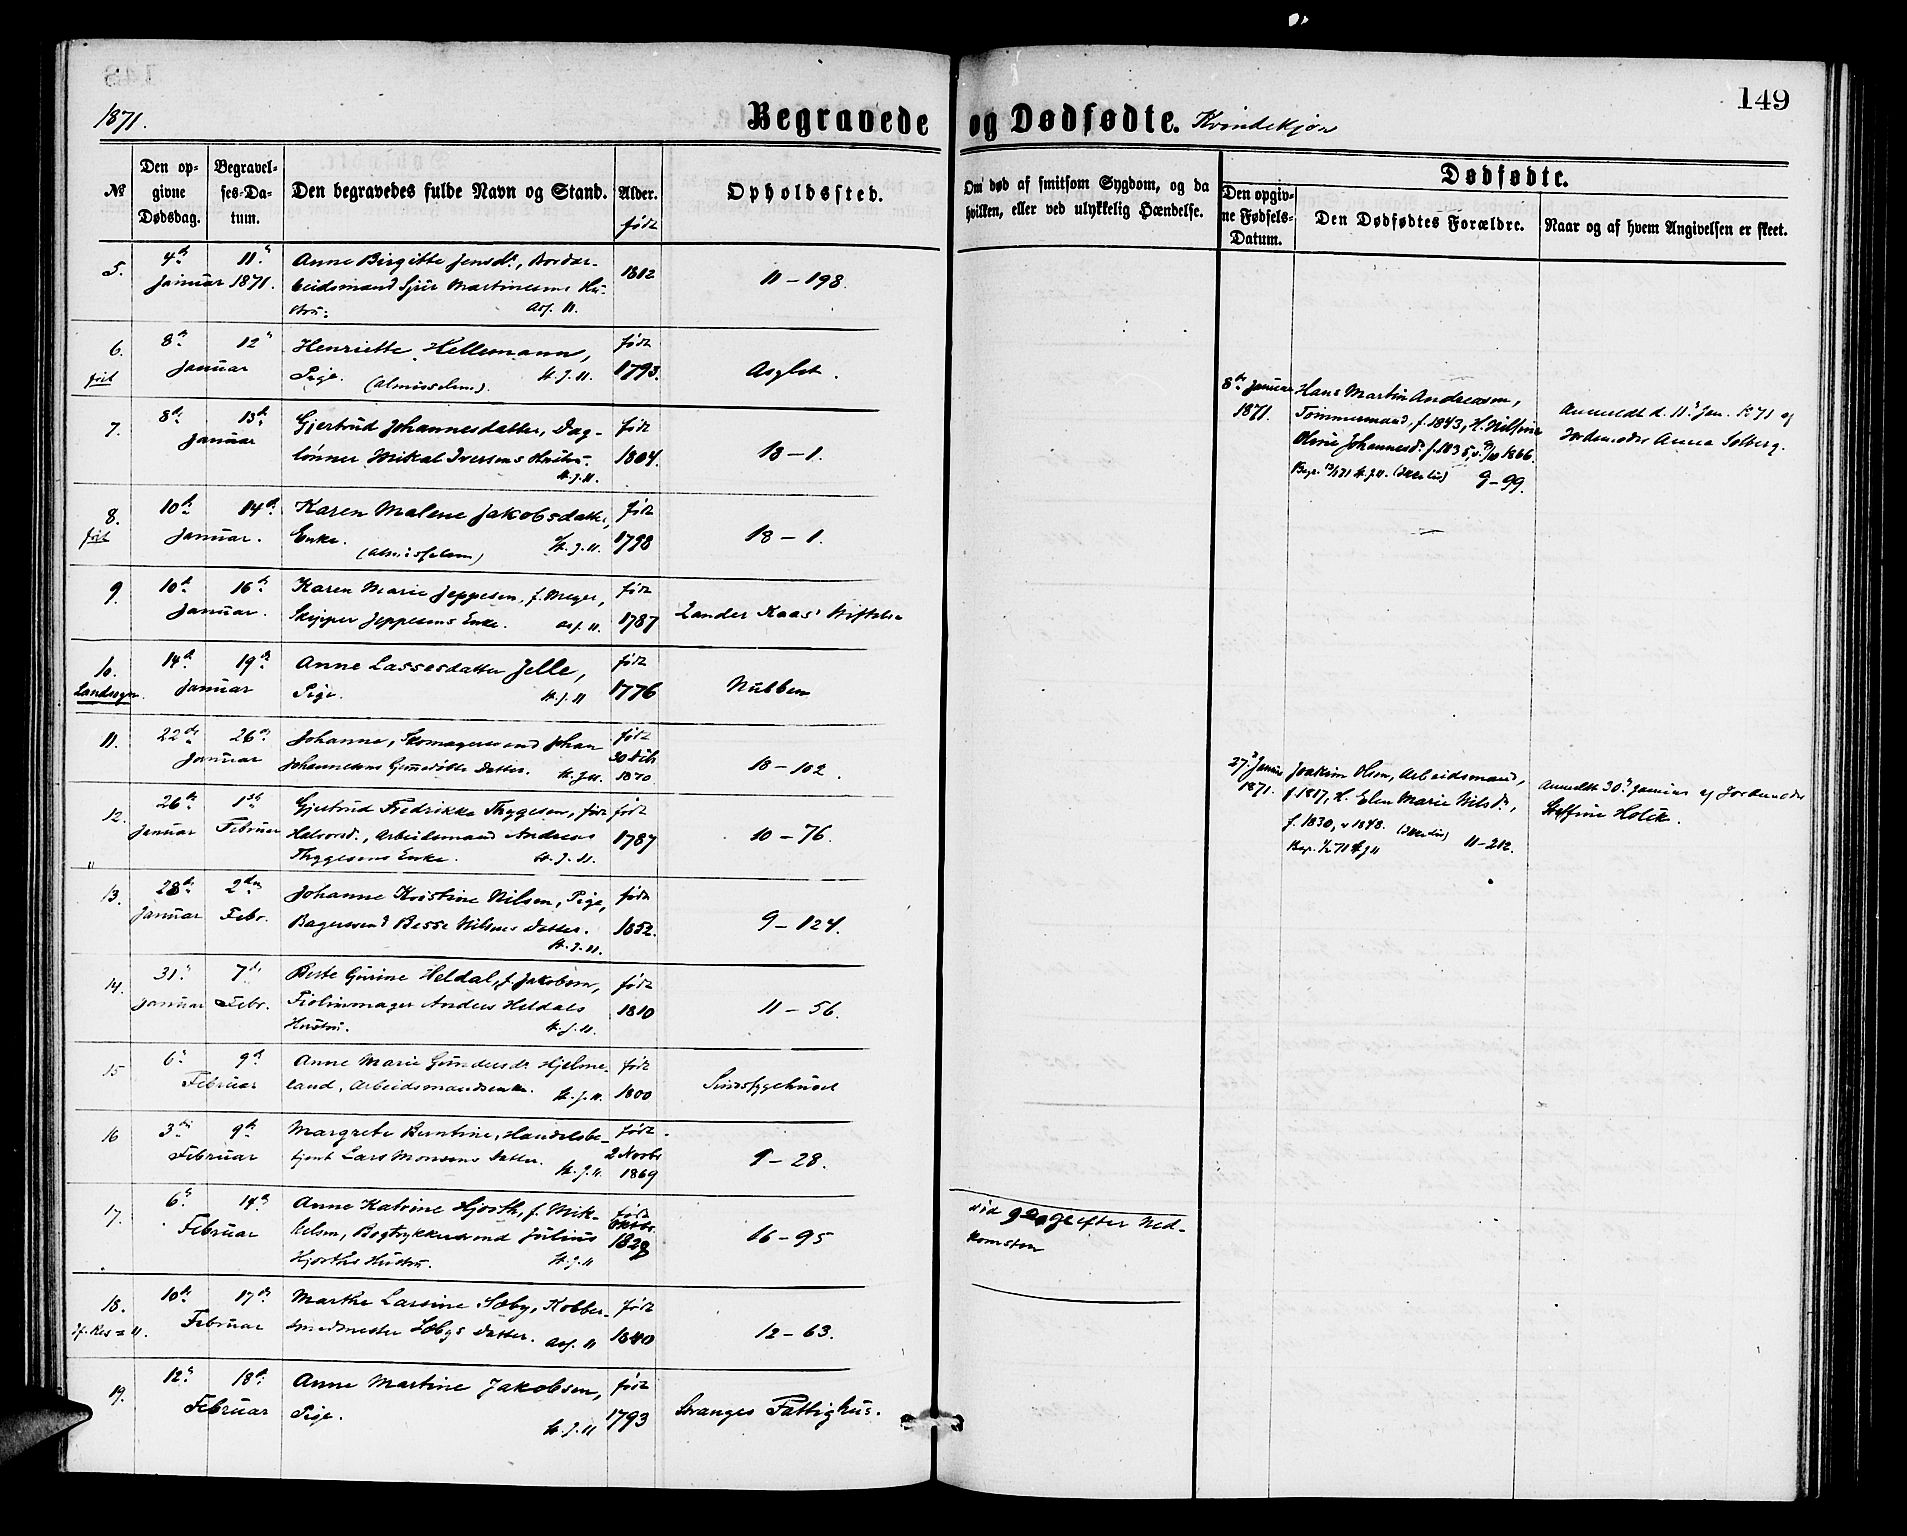 149
1871.
Begravede og Dødfødte. Kvindekjøn
№
Den opgivne Dødsdag.
Begravelses-Datum.
Den begravedes fulde Navn og Stand.
Alder.
født
Opholdssted.
Om død af smitsom Sygdom, og da hvilken, eller ved ulykkelig Hændelse.
Dødfødte.
Den opgivne Fødsels-Datum.
Den Dødfødtes Forældre.
Naar og af hvem Angivelsen er skeet.
5. 4de 11te Anne Birgitte Jensdr., Bordar-
Januar 1871. beidsmand Sjur Martinsens Hu- 1812 11 – 198.
stru.
6. 8de 12te Henriette Hellemann, født
frit Januar Pige. (Almisselem). St. J. 11. 1793. Asylet.
7. 8de 13de Gjertrud Johannesdatter, Dag- født
Januar lønner Mikal Iversens Hustru. 1804. 18 – 1.
St. J. 11.
8. 10de 14de Karen Malene Jakobsdatter, født
frit Januar. Enke. (Almisselem) St. J. 11. 1798 18 – 1.
9. 10de 16de Karen Marie Jeppesen, f. Meyer, født
Januar. Skipper Jeppesens Enke. 1787 Zander Kaas' Stiftelse
10. 14de 19de Anne Lassesdatter Jelle, født
Landsogn. Januar Pige. St. J. 11 1776 Nubben
11. 22de 26de Johanne, Skomagersvend Johan født
Januar Johannesens Datter. St. J. 11. 1870 18 – 102.
12. 26de 1ste Gjertrud Fredrikke Thygesen, født født
Januar Februar Halvorsd., Arbeidsmand Andreas 1787 10 – 76.
Thygesens Enke. St. J. 11.
13. 28de 2den Johanne Kristine Nilsen, Pige, født
Januar Febr. Bagersvend Nilsens Datter. 1852. 9 – 124.
St. J. 11.
14. 31te 7de Gurine Heldal, f. Jakobsen, født
Januar Febr. Fiolinmager Anders Heldals 1810 11 – 56.
Hustru. St. J. 11.
15 6te 9de Anne Marie Gundersdr Hjelme- født
Februar land, Arbeidsmandsenke. St. J. 11. 1800 Sindssygehuset
16 3die 9de Margrete Berntine, Handelsbe- født
Februar tjent Lars Monsens Datter. 2 Novbr 9 – 28.
St. J. 11. 1869
17. 6te 14de Anne Katrine Hjorth, f. Mik- født
Februar kelsen, Bogtrykkersvend Julius Oktbr. 16 – 95
Hjorths Hustru. St. J. 11
18. 10de 17de Marthe Larsine Søby, Kobber- født
Februar smedmester Søbys Datter. 1840 12 – 63.
19. 12te 18de Anne Martine Jakobsen, født
Februar Pige. St. J. 11 1793 Stranges Fattighus.
efter Ned-
komsten
8de Januar
1871.
Hans Martin Andreasen,
Tømmermand, f. 1843, H. Nilsine
Olsine Johannesdr. f. 1835, 1866.
9 – 99.
Anmeldt d. 11te Jan. 1871 af
Jordemoder Anna Solberg.
27de Januar
1871.
Joakim Olsen, Arbeidsmand,
f. 1817, H. Elen Marie Nilsdr.,
f. 1830, v. 1848.
11 – 212.
Anmeldt 30te Januar af Jordemoder
Steffine Holck.